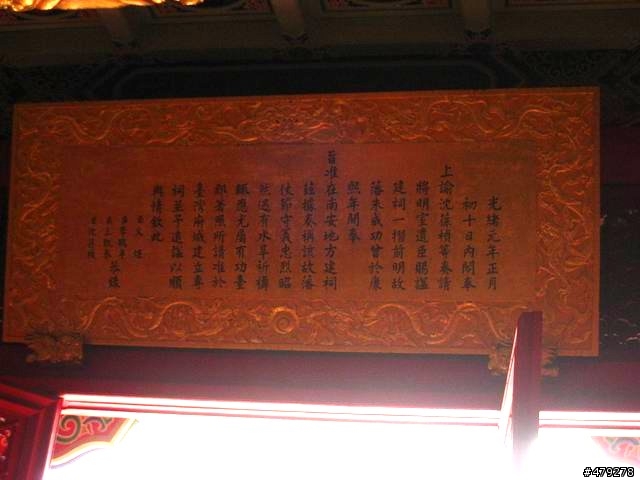 光緒元年正月
初十日內閣奉
上諭沈葆楨等奏請
將明室遺臣賜諡
建祠一摺前明故
藩朱成功曾於康
熙年間奉
旨准在南安地方建祠
茲據奏稱該故藩
仗節守義忠烈昭
然遇有水旱祈禱
輒應尤屬有功臺
郡著照所請准於
臺灣府城建立專
祠並予追諡以順
輿情欽此
#479278